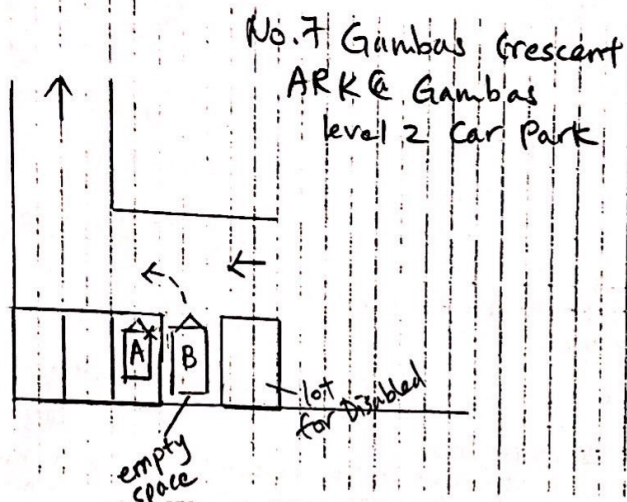 No. 7 Gambas Crescent
ARK@ Gambas
level 2 Car Park
A
B
lot
for Disabled
empty
space